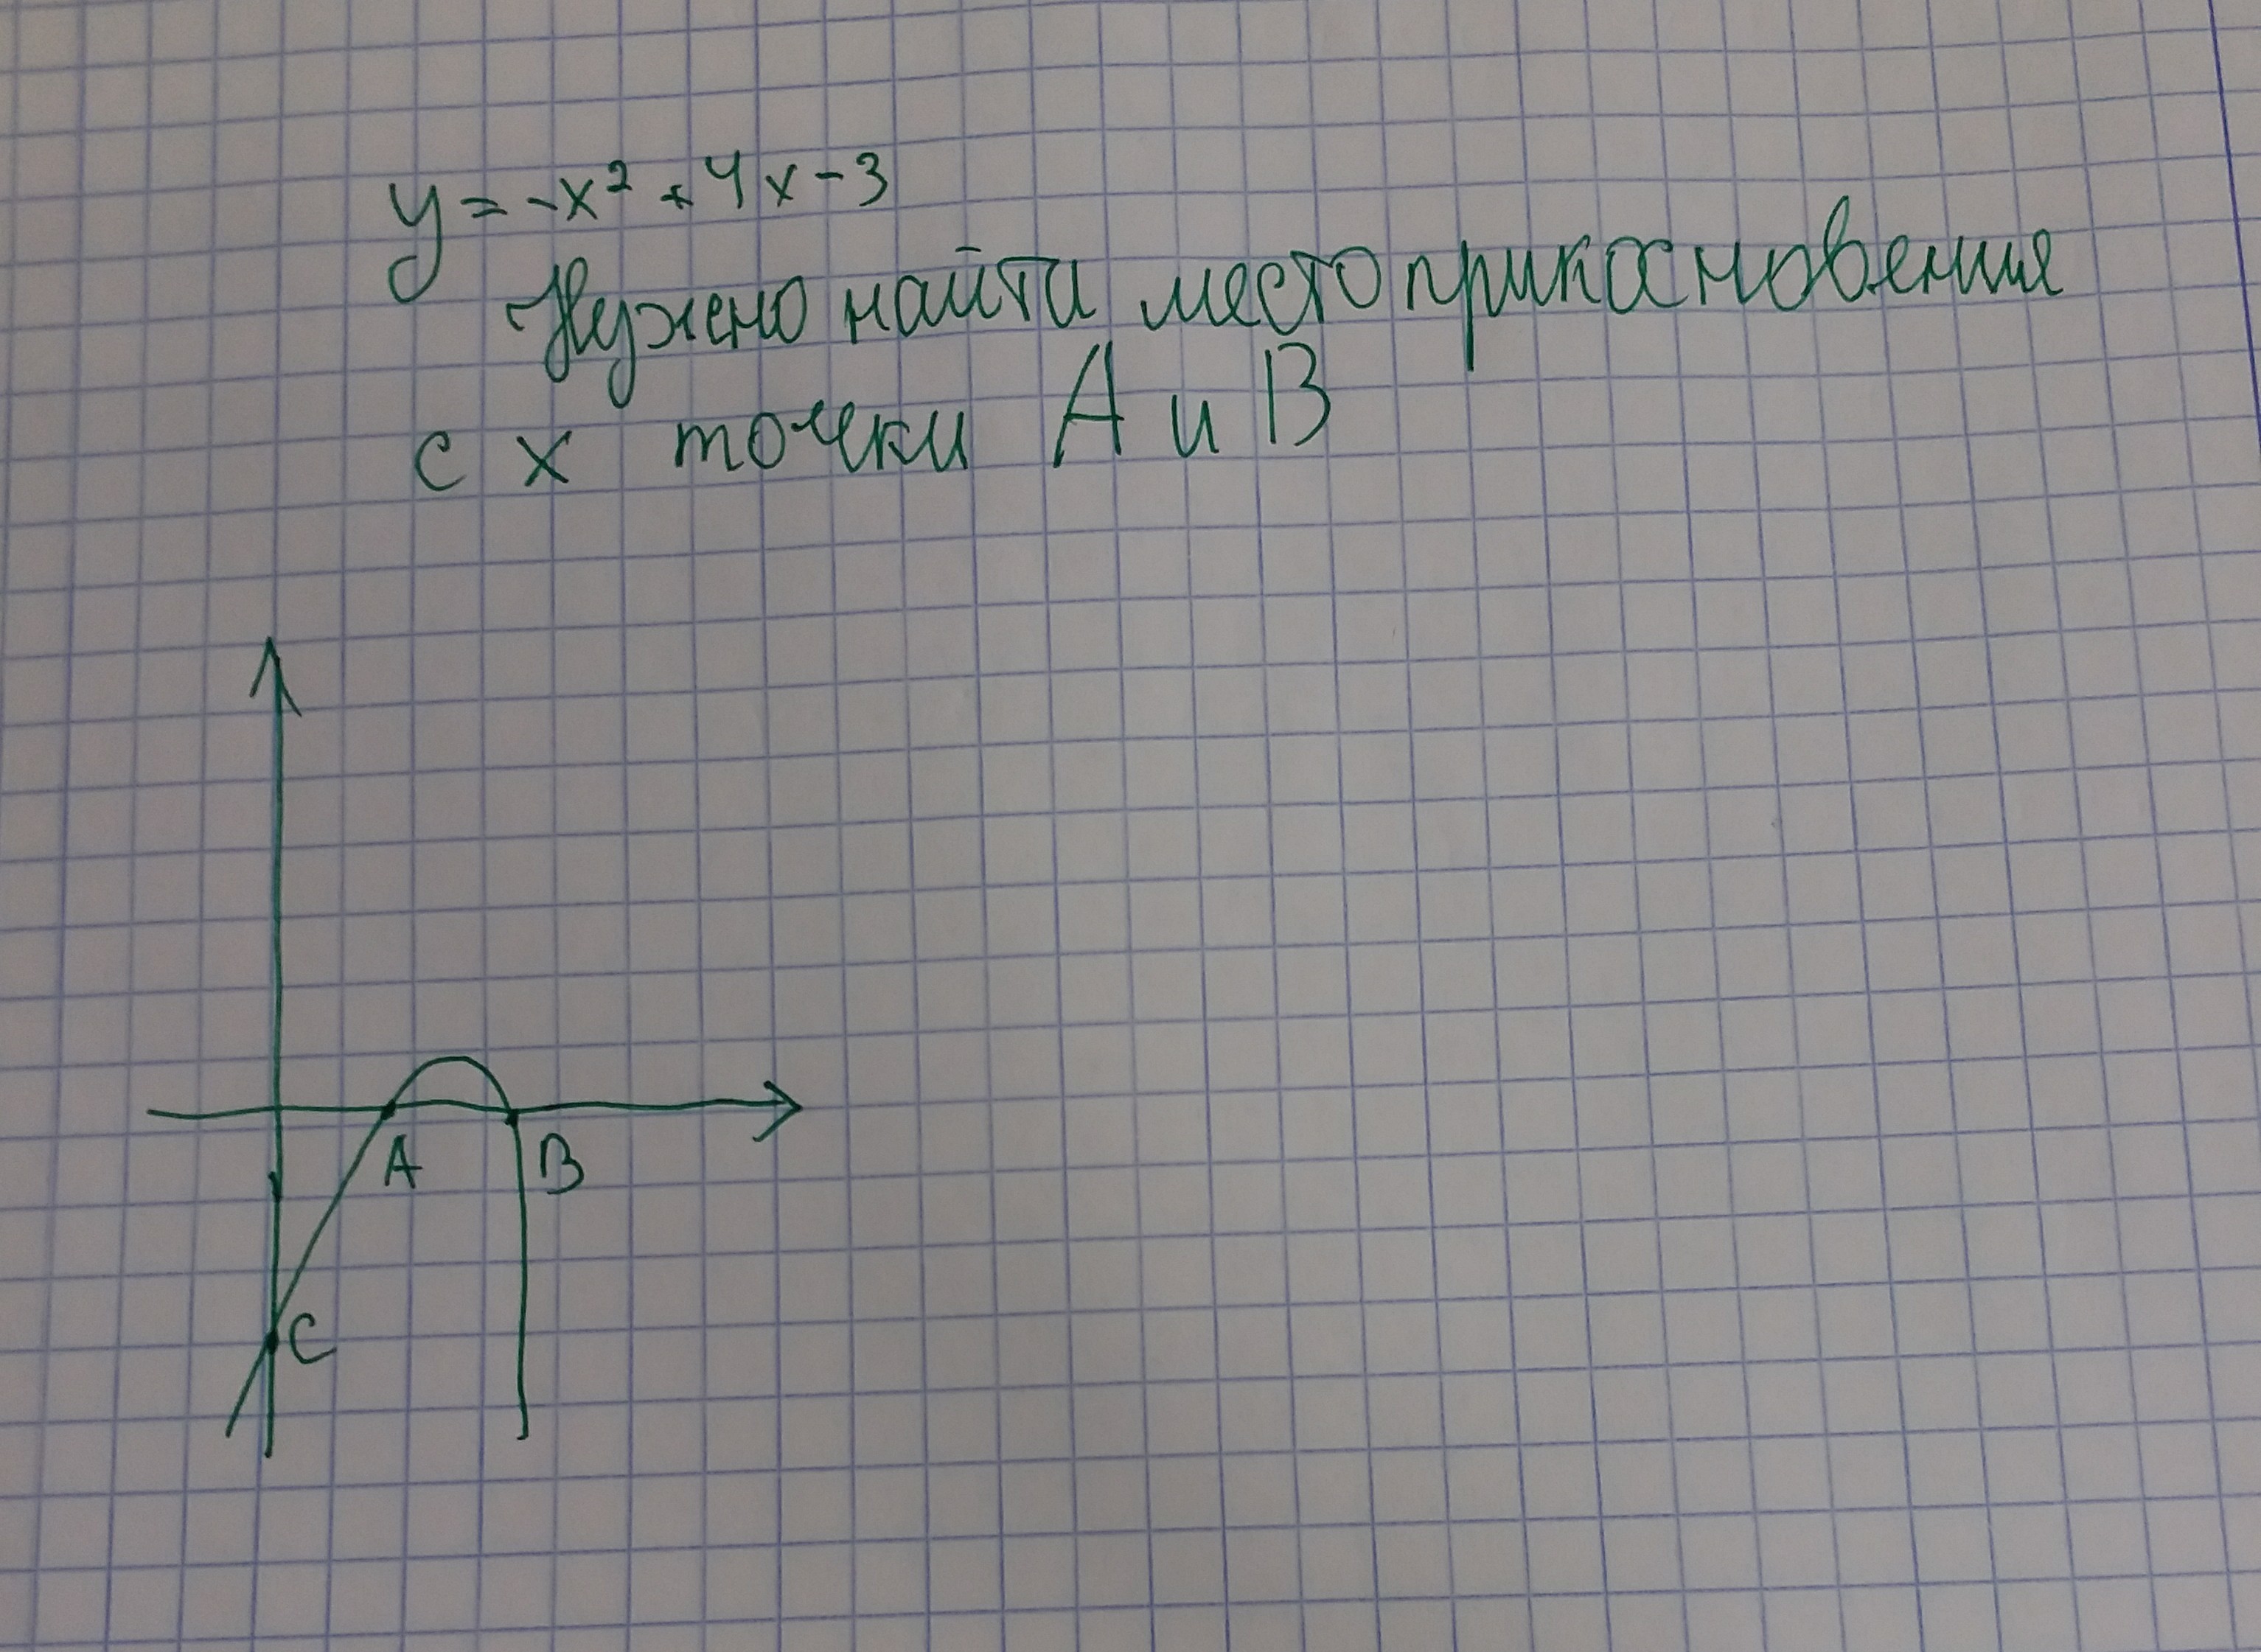 y = -x² + 4x - 3
Нужно найти место прикосновения
с x точки A и B
A
B
C